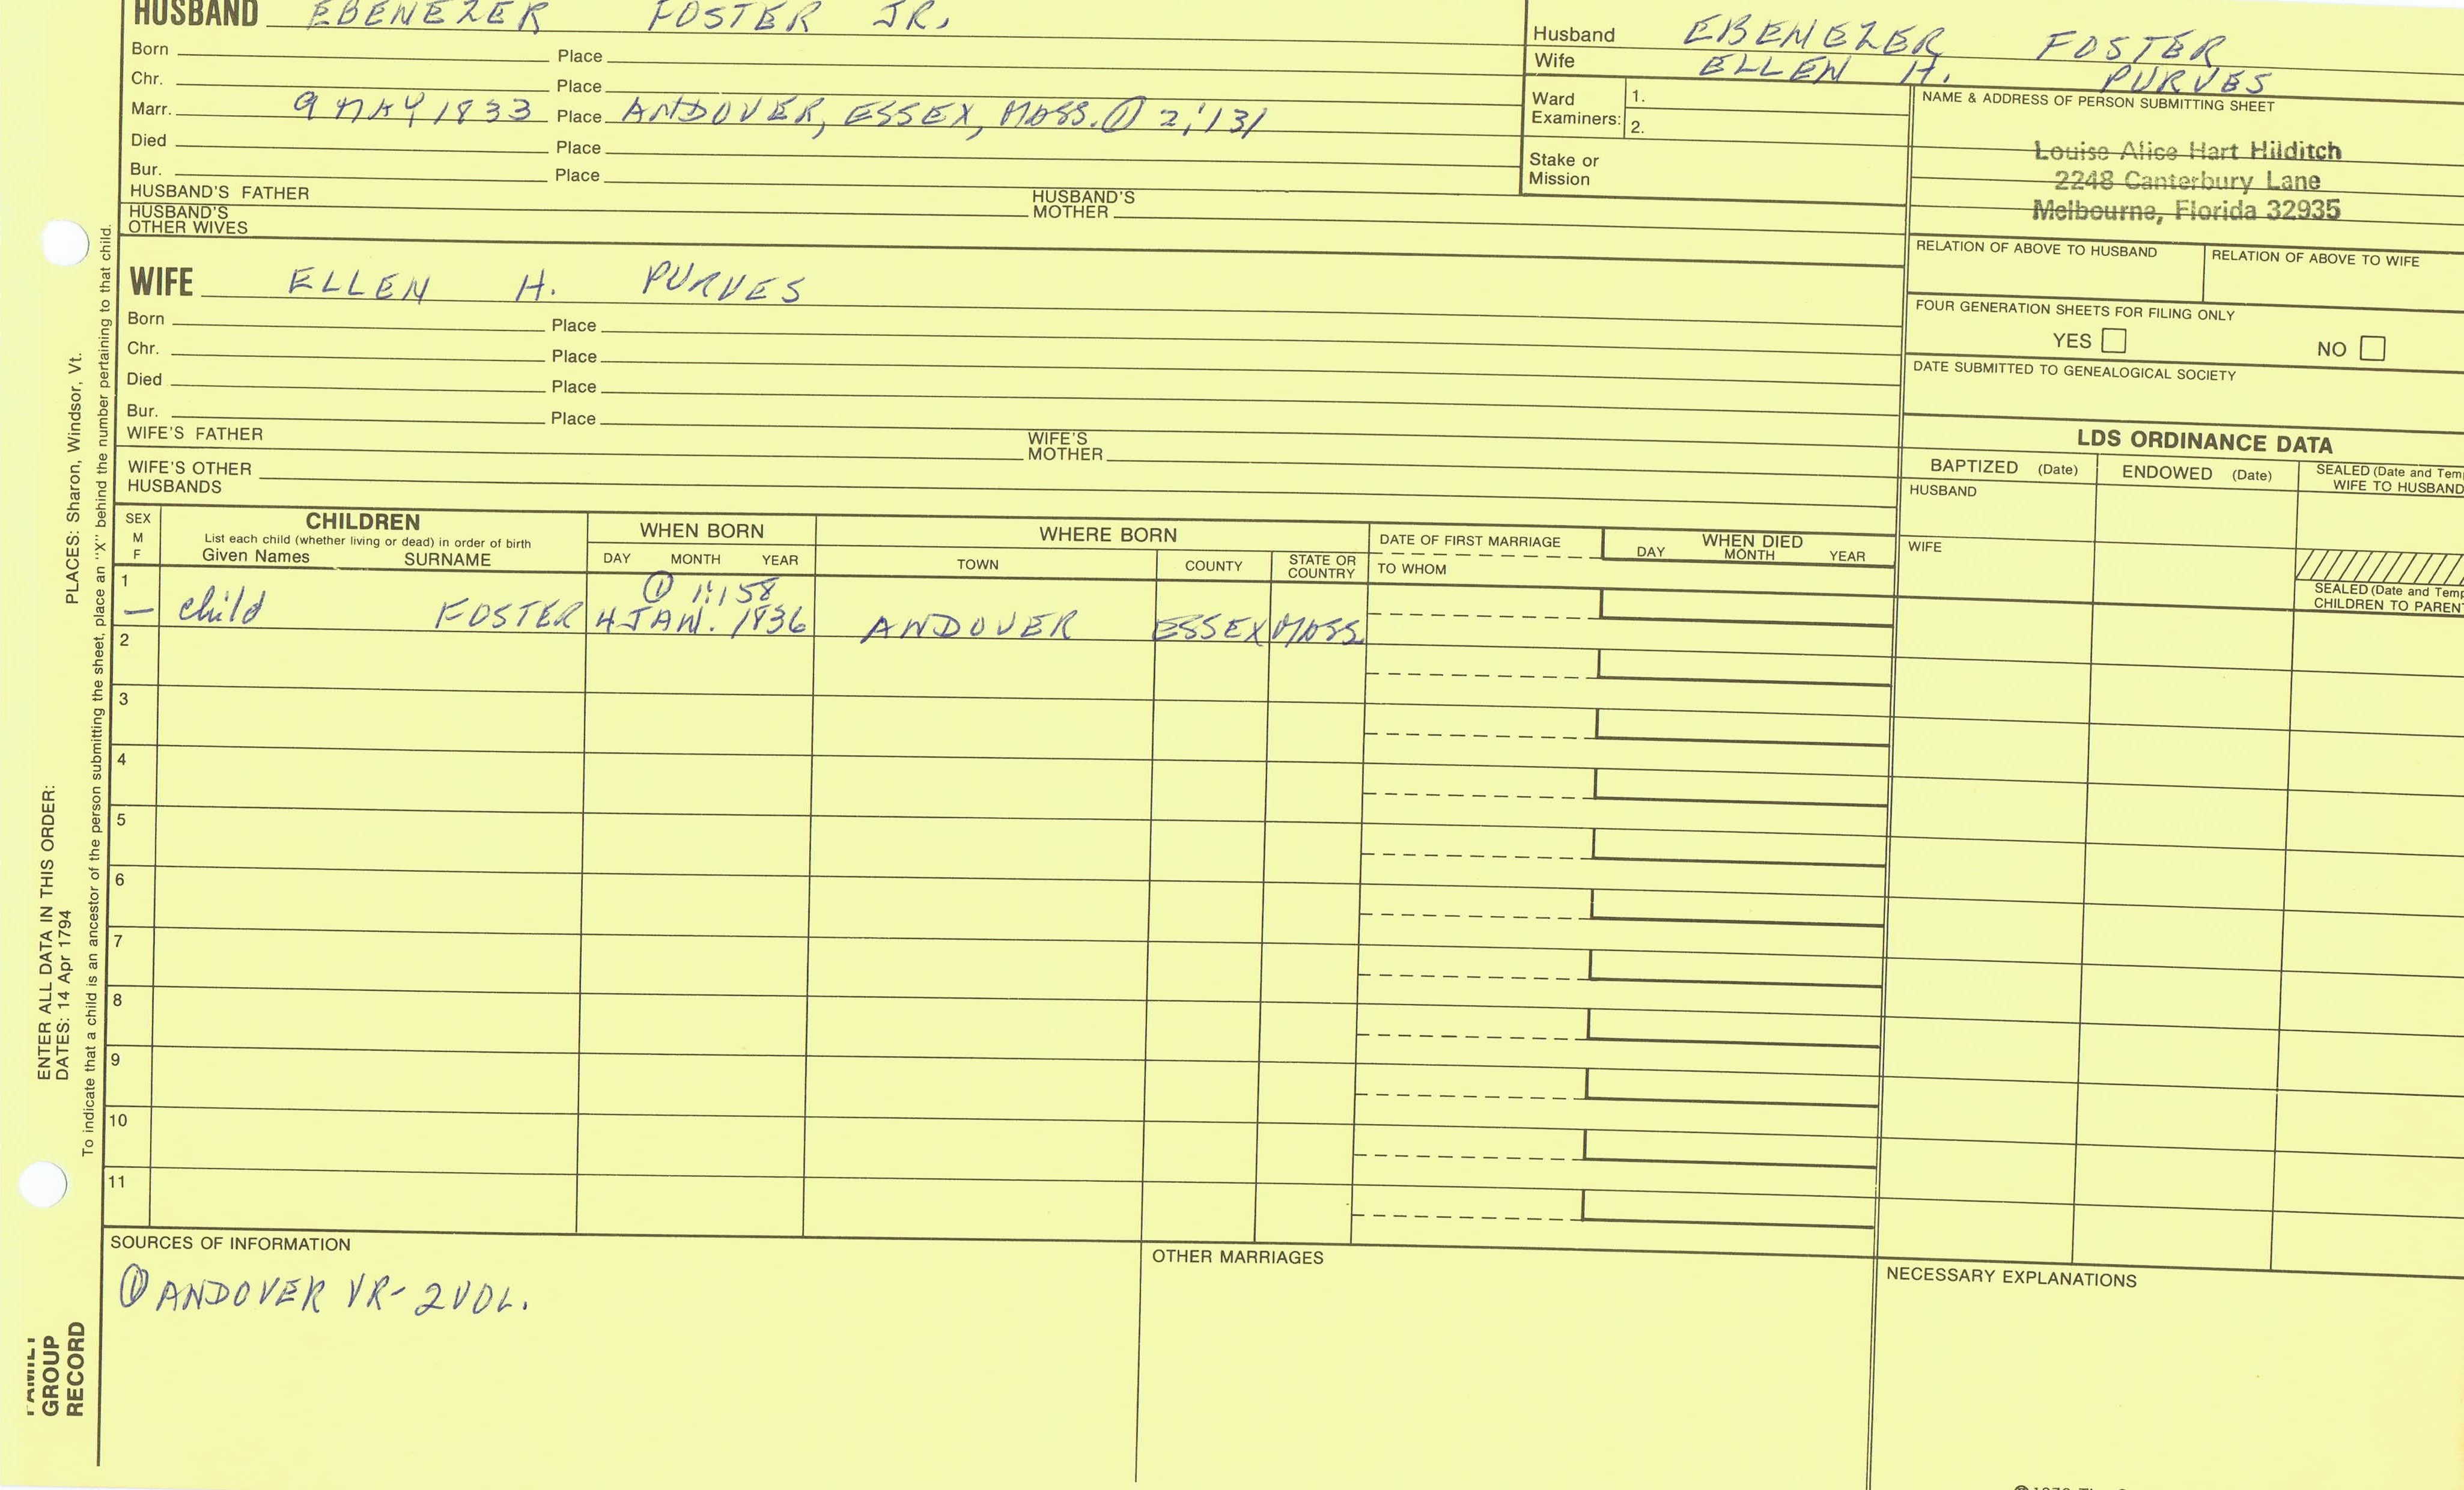 HUSBAND EBENEZER FOSTER JR.
Born Place
Chr. Place
Marr. 9 MAY 1833 Place ANDOVER, ESSEX, MASS. ① 2:131
Died Place
Bur. Place
HUSBAND'S FATHER HUSBAND'S MOTHER
HUSBAND'S OTHER WIVES
Husband EBENEZER FOSTER
Wife ELLEN H. PURVES
Ward Examiners: 1.
2.
Stake or Mission
NAME & ADDRESS OF PERSON SUBMITTING SHEET
Louise Alice Hart Hilditch
2248 Canterbury Lane
Melbourne, Florida 32935
RELATION OF ABOVE TO HUSBAND RELATION OF ABOVE TO WIFE
FOUR GENERATION SHEETS FOR FILING ONLY
YES NO
DATE SUBMITTED TO GENEALOGICAL SOCIETY
WIFE ELLEN H. PURVES
Born Place
Chr. Place
Died Place
Bur. Place
WIFE'S FATHER WIFE'S MOTHER
WIFE'S OTHER HUSBANDS
LDS ORDINANCE DATA
BAPTIZED (Date) ENDOWED (Date) SEALED (Date and Tem
WIFE TO HUSBAND
HUSBAND
WIFE
SEALED (Date and Temp
CHILDREN TO PAREN
SEX
M
F
CHILDREN
List each child (whether living or dead) in order of birth
Given Names SURNAME
WHEN BORN
DAY MONTH YEAR
WHERE BORN
TOWN COUNTY STATE OR COUNTRY
DATE OF FIRST MARRIAGE
TO WHOM
WHEN DIED
DAY MONTH YEAR
① 1:158
1 — child FOSTER 4 JAN. 1836 ANDOVER ESSEX MASS.
2
3
4
5
6
7
8
9
10
11
SOURCES OF INFORMATION
① ANDOVER VR- 2 VOL.
OTHER MARRIAGES
NECESSARY EXPLANATIONS
ENTER ALL DATA IN THIS ORDER:
DATES: 14 Apr 1794
PLACES: Sharon, Windsor, Vt.
To indicate that a child is an ancestor of the person submitting the sheet, place an "X" behind the number pertaining to that child.
FAMILY
GROUP
RECORD